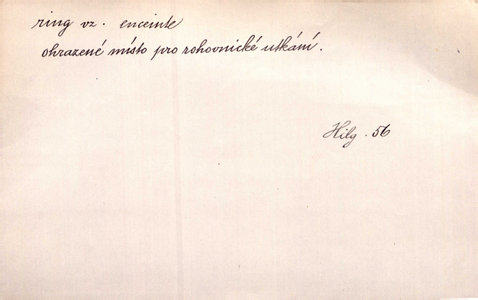 ring vz. enceinte
ohrazené místo pro rohovnické utkání.
Hilg. 56